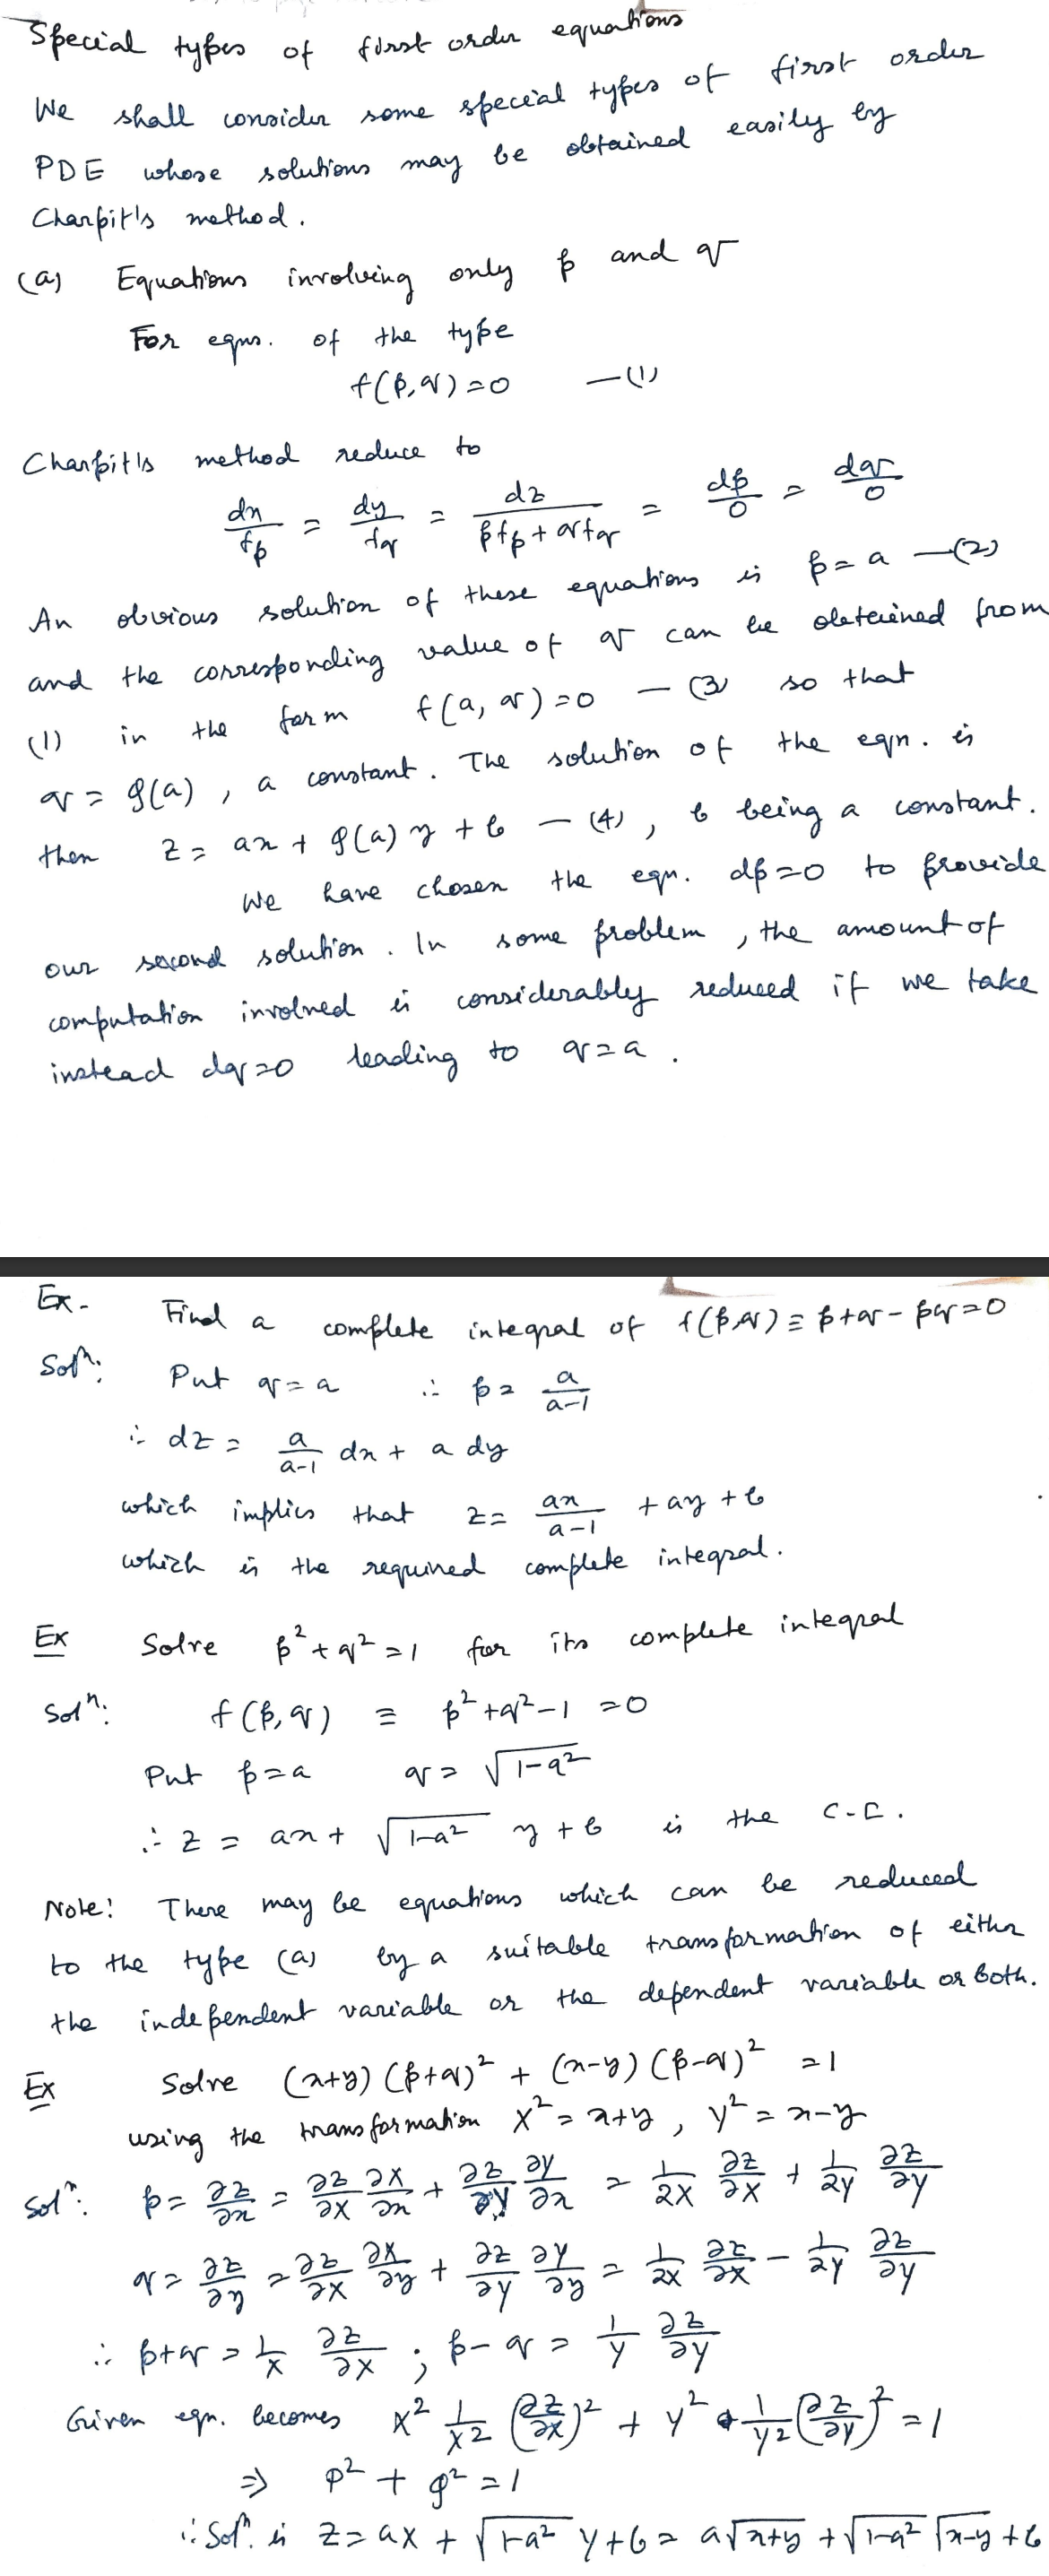 Special types of first order equations
We shall consider some special types of first order
PDE whose solutions may be obtained easily by
Charpit's method.
(a) Equations involving only p and q
For eqns. of the type
f(p,q)=0 —(1)
Charpit's method reduce to
dx/f_p = dy/f_q = dz/(p f_p + q f_q) = dp/0 = dq/0
An obvious solution of these equations is p=a —(2)
and the corresponding value of q can be obtained from
(1) in the form f(a,q)=0 —(3) so that
q = Q(a), a constant. The solution of the eqn. is
then z = ax + Q(a) y + b —(4), b being a constant.
We have chosen the eqn. dp=0 to provide
our second solution. In some problem, the amount of
computation involved is considerably reduced if we take
instead dq=0 leading to q=a.
Ex- Find a complete integral of f(p,q) ≡ p+q-pq=0
Solⁿ: Put q=a ∴ p = a/(a-1)
∴ dz = a/(a-1) dx + a dy
which implies that z = ax/(a-1) + ay + b
which is the required complete integral.
Ex Solve p²+q²=1 for its complete integral
Solⁿ: f(p,q) ≡ p²+q²-1 =0
Put p=a q = √(1-a²)
∴ z = ax + √(1-a²) y + b is the C.I.
Note: There may be equations which can be reduced
to the type (a) by a suitable transformation of either
the independent variable or the dependent variable or both.
Ex Solve (x+y)(p+q)² + (x-y)(p-q)² =1
using the transformation X²=x+y, Y²=x-y
Solⁿ: p = ∂z/∂x = ∂z/∂X ∂X/∂x + ∂z/∂Y ∂Y/∂x = 1/2X ∂z/∂X + 1/2Y ∂z/∂Y
q = ∂z/∂y = ∂z/∂X ∂X/∂y + ∂z/∂Y ∂Y/∂y = 1/2X ∂z/∂X - 1/2Y ∂z/∂Y
∴ p+q = 1/X ∂z/∂X ; p-q = 1/Y ∂z/∂Y
Given eqn. becomes X² 1/X² (∂z/∂X)² + Y² 1/Y² (∂z/∂Y)² =1
⇒ P² + Q² =1
∴ Solⁿ. is z = aX + √(1-a²) Y+b = a√(x+y) + √(1-a²) √(x-y) + b